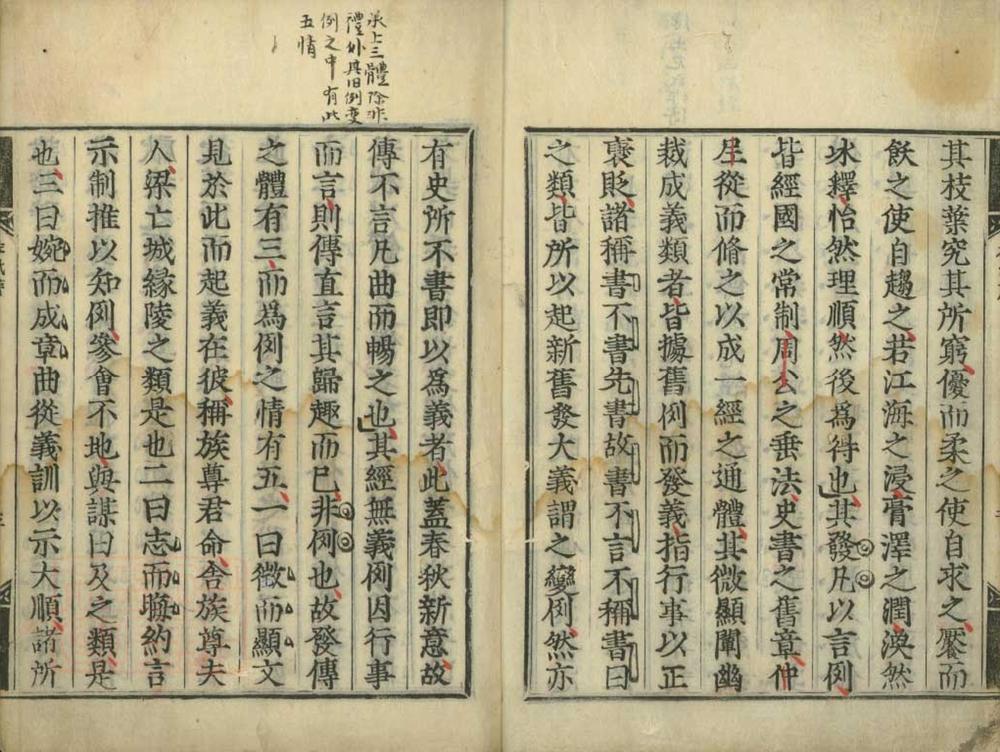 其枝葉究其所窮優而柔之使自求之饜而
飫之使自趨之若江海之浸膏澤之潤渙然
冰釋怡然理順然後爲得也其發凡以言例
皆經國之常制周公之垂法史書之舊章仲
尼從而脩之以成一經之通體其微顯闡幽
裁成義類者皆據舊例而發義指行事以正
褒貶諸稱書不書先書故書不言不稱書曰
之類皆所以起新舊發大義謂之變例然亦
承上三體除非
禮外其旧例变
例之中有此
五情
有史所不書即以爲義者此蓋春秋新意故
傳不言凡曲而暢之也其經無義例因行事
而言則傳直言其歸趣而已非例也故發傳
之體有三而爲例之情有五一曰微而顯文
見於此而起義在彼稱族尊君命舍族尊夫
人梁亡城緣陵之類是也二曰志而晦約言
示制推以知例參會不地與謀曰及之類是
也三曰婉而成章曲從義訓以示大順諸所